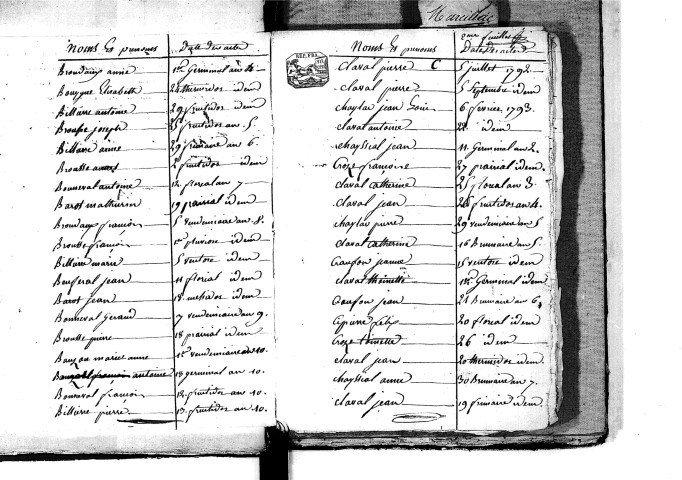 Marcillac
noms Et prenoms Datte des actes
Broudain anne 1er Germinal an 4.
Bouyque Elisabeth 24 thermidor idem
Billure antoine 29 fructidor idem
Broupe joseph 25 fructidor an 5.
Billure anne 29 frimaire an 6.
Broutte 2e fructidor idem
Bonneval antoine 12. floreal an 7
Barot mathurin 19 prairial idem
Broudaup francois 5 vendemiaire an 8.
Broutte francois 1er pluviose idem
Billure marie 5 ventose idem
Bonneval jean 11 florial idem
Barot jean 18. messidor idem
Bonneval Geraud 7 vendemiaire an 9.
Broutte pierre 18 prairial idem
Bouzon marie anne 1er vendemiaire an 10.
antoine 18 germinal an 10.
Bonneval francois 12 fructidor an 10.
Billure pierre 13. fructidor an 10.
2eme feuillet
Noms Et prenoms Datte des actes
REP. FRA.
claval pierre C 5 juillet 1792.
claval pierre 5 Septembre idem
chaylac jean Louis 6 fevrier 1793.
claval antoine 22 idem
chayssial jean 11 Germinal an 2.
Croze francoise 27 prairial idem.
claval catherine 25 floreal an 3.
claval jean 26 fructidor an 4.
chaylac pierre 29 vendemiaire an 5
claval catherine 16 Brumaire an 5.
Caufon jeanne 15 ventose idem
claval thoinette 1er Germinal idem
Caufon jean 21 Brumaire an 6.
felix 20 floreal idem
Croze toinette 26 idem
claval jean 20 thermidor idem
chayssial anne 30 Brumaire an 7.
claval jean 19 frimaire idem.